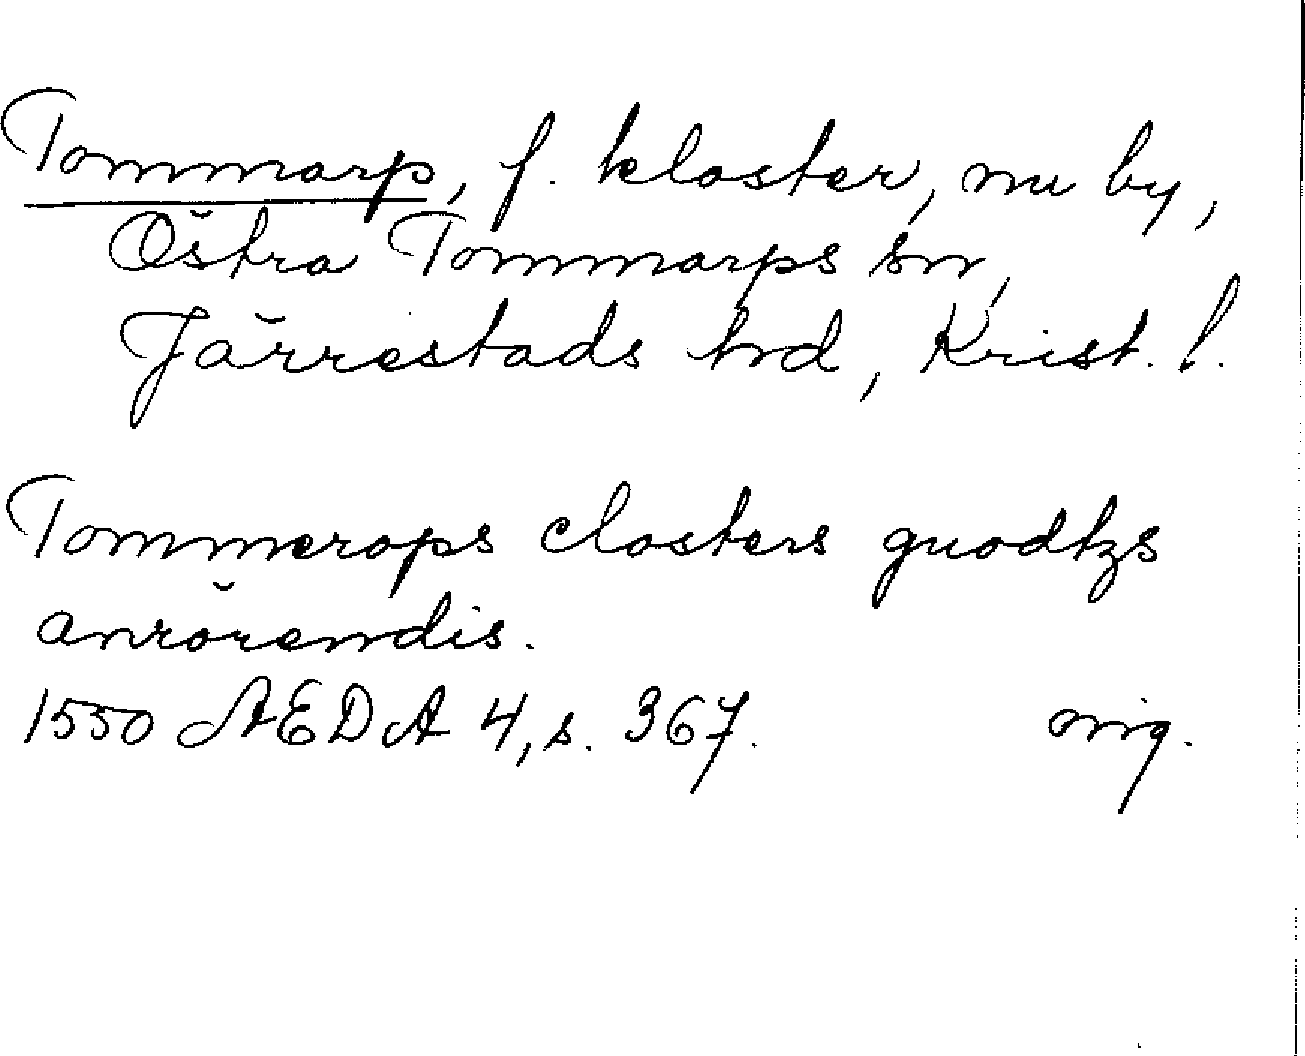 Tommarp, f. kloster, nu by,
Östra Tommarps sn,
Järrestads hd, Krist. l.
Tommerops closters guodtzs
anrörendis.
1550 ÆDA 4, s. 367. mig.